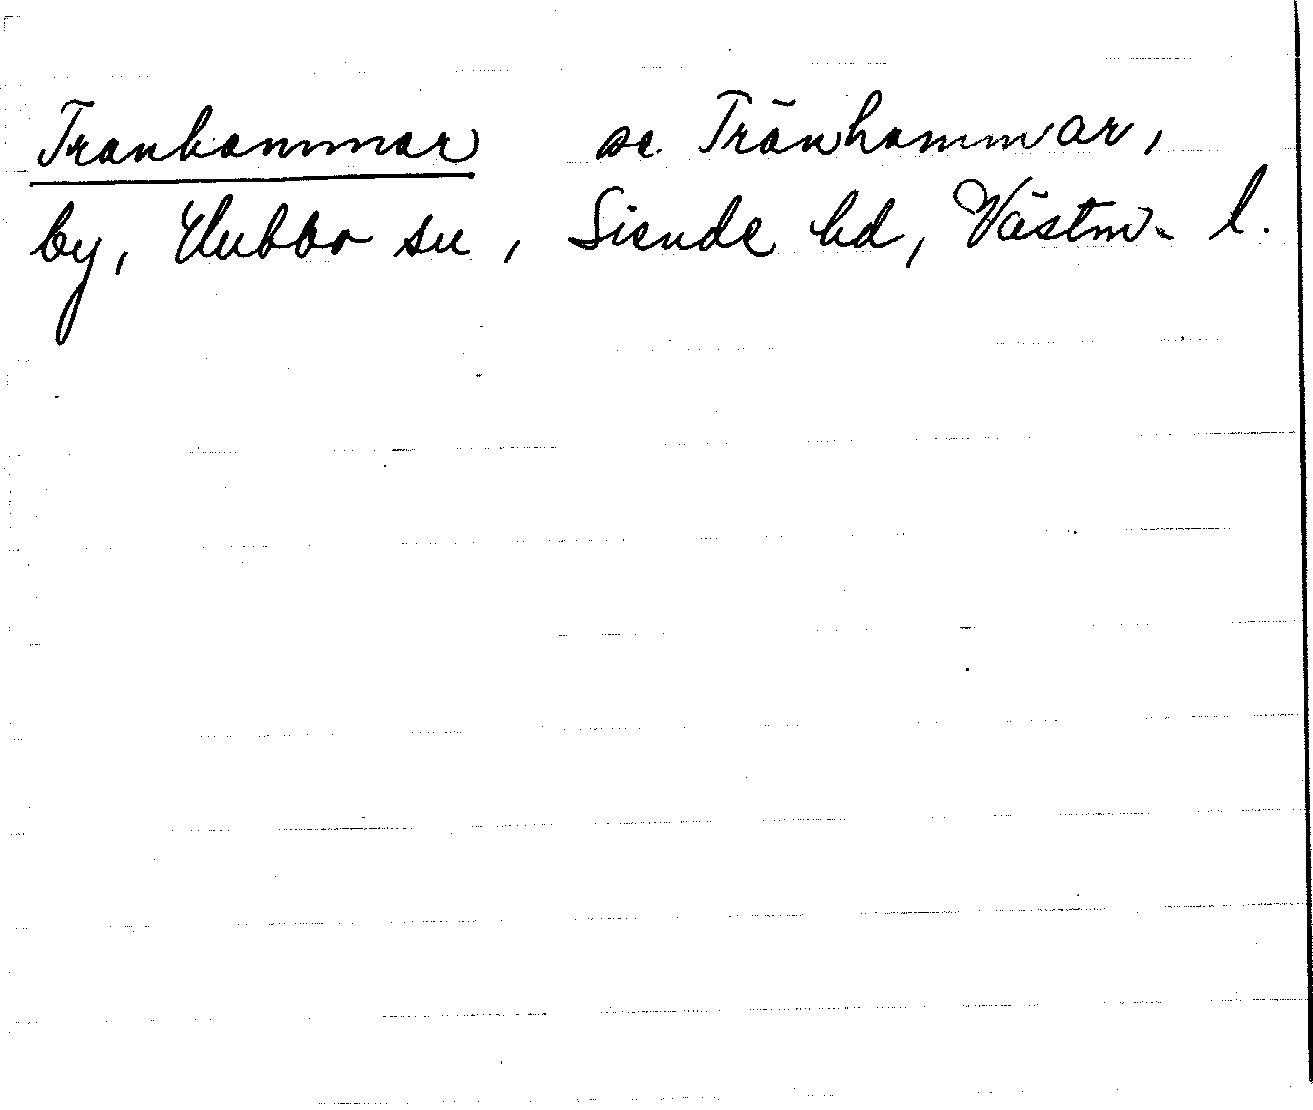 Tranhammar se Tränhammar,
by, Hubbo sn, Siende hd, Västm. l.